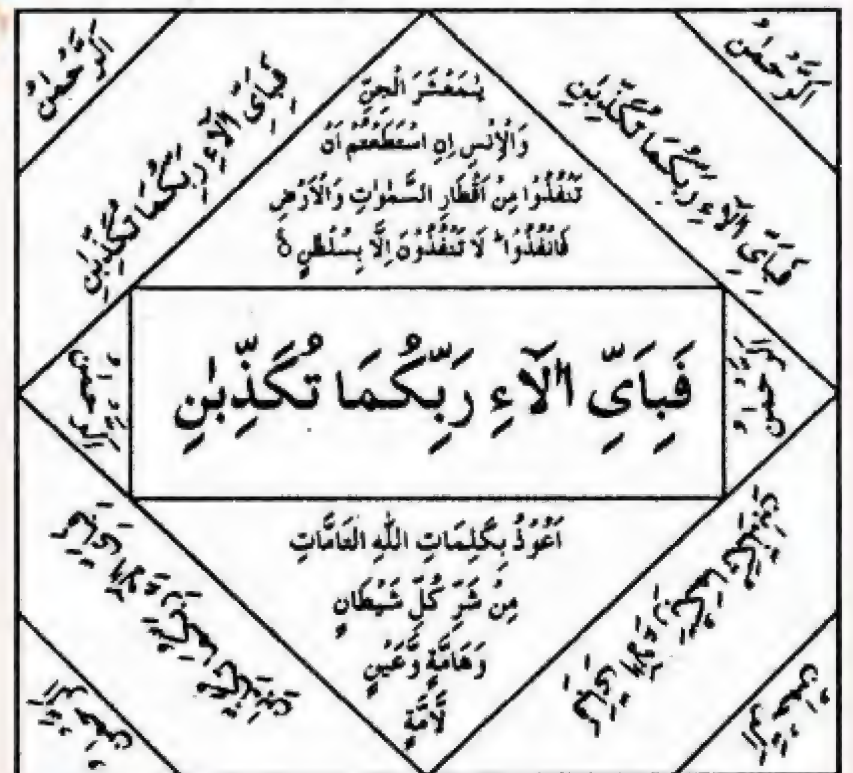 اَلرَّحْمٰنُ
اَلرَّحْمٰنُ
فَبِاَيِّ اٰلَاۤءِ رَبِّكُمَا تُكَذِّبٰنِ
فَبِاَيِّ اٰلَاۤءِ رَبِّكُمَا تُكَذِّبٰنِ
يٰمَعْشَرَ الْجِنِّ
وَالْاِنْسِ اِنِ اسْتَطَعْتُمْ اَنْ
تَنْفُذُوْا مِنْ اَقْطَارِ السَّمٰوٰتِ وَالْاَرْضِ
فَانْفُذُوْا ؕ لَا تَنْفُذُوْنَ اِلَّا بِسُلْطٰنٍ ۟
اَلرَّحْمٰنُ
فَبِاَيِّ اٰلَاۤءِ رَبِّكُمَا تُكَذِّبٰنِ
اَلرَّحْمٰنُ
اَعُوْذُ بِكَلِمَاتِ اللّٰهِ التَّامَّاتِ
مِنْ شَرِّ كُلِّ شَيْطَانٍ
وَهَامَّةٍ وَّعَيْنٍ
لَّامَّةٍ
فَبِاَيِّ اٰلَاۤءِ رَبِّكُمَا تُكَذِّبٰنِ
فَبِاَيِّ اٰلَاۤءِ رَبِّكُمَا تُكَذِّبٰنِ
اَلرَّحْمٰنُ
اَلرَّحْمٰنُ